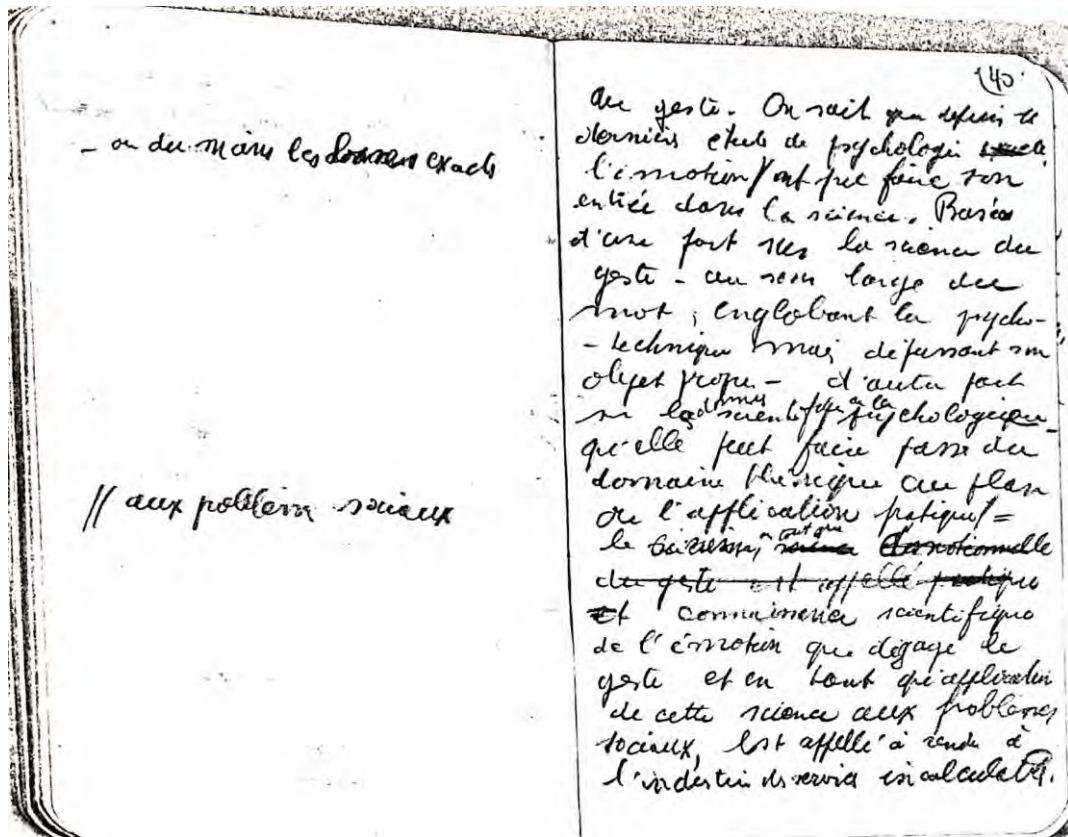 - ou du moins les données exacts
// aux problèms sociaux
(40)
du geste. On sait que depuis le
dernièrs études de psychologie
l'émotion // ont pu faire son
entrée dans la science. Basées
d'une part sur la science du
geste - au sens large du
mot, englobant la psycho-
-technique mais dépassant son
objet propre - d'autre part
sur les données scientifiques de la psychologique
qu'elle peut faire passer du
domaine théorique au plan
de l'application pratique // =
le en tant que
du geste est appellé pratique
et connaissance scientifique
de l'émotion que dégage le
geste et en tant qu'application
de cette science aux problèmes
sociaux, est appellé à rendre à
l'industrie des services incalculables.